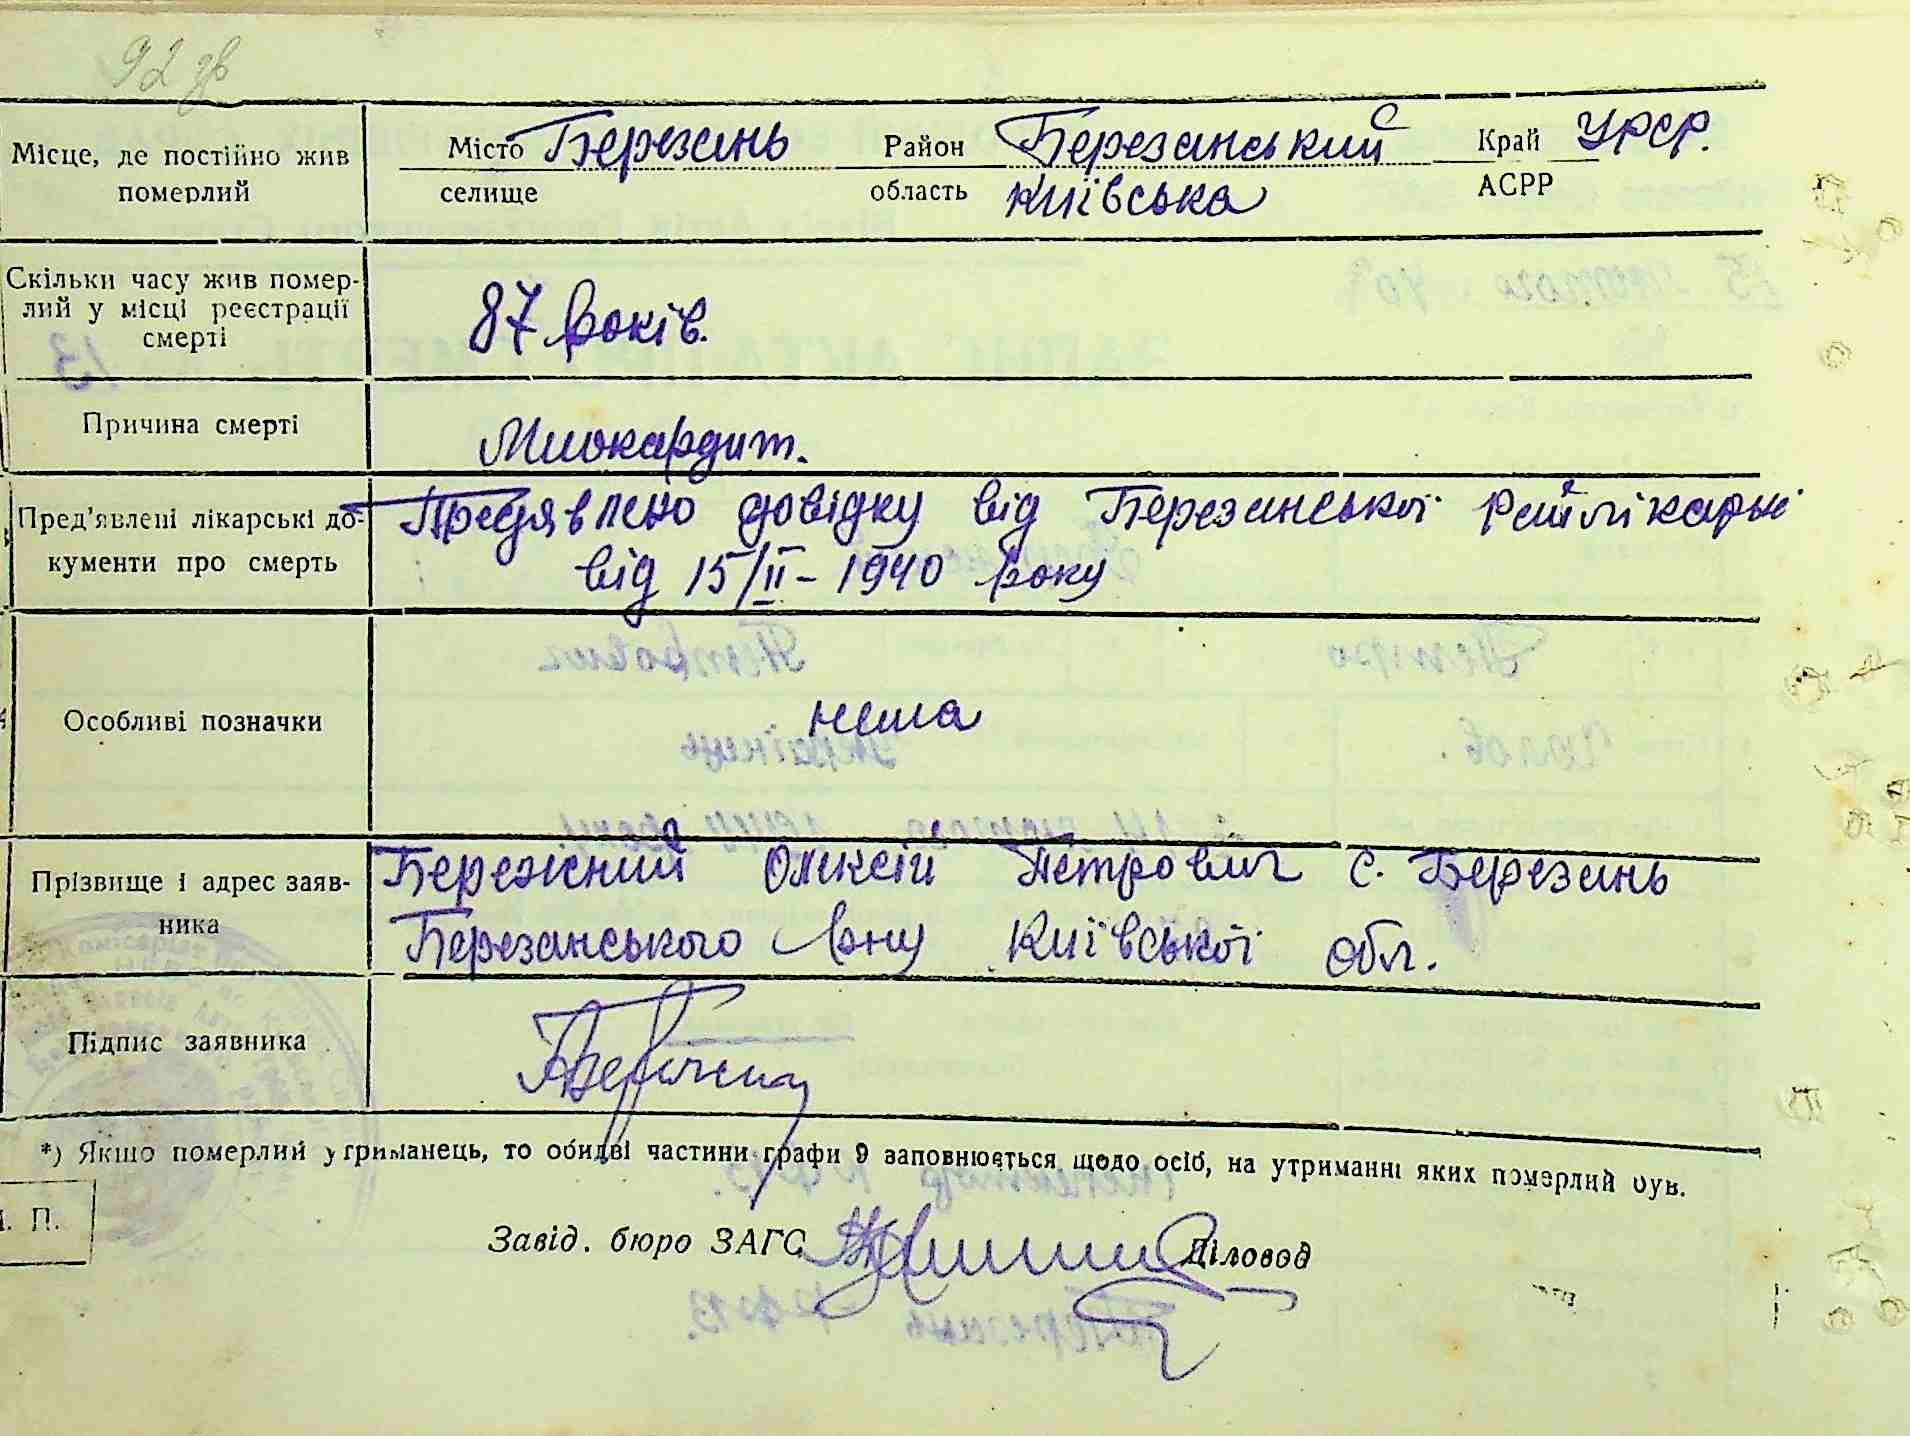 92 зв
Місце, де постійно жив
померлий
Місто Березань Район Березанський Край УРСР.
селище область Київська АСРР
Скільки часу жив помер-
лий у місці реєстрації
смерті
87 років.
Причина смерті
Миокардит.
Пред'явлені лікарські до-
кументи про смерть
Предявлено довідку від Березанської райлікарні
від 15/II – 1940 року
Особливі позначки
нема
Прізвище і адрес заяв-
ника
Бережний Олексій Петрович с. Березань
Березанського рну Київської обл.
Підпис заявника
*) Якщо померлий утриманець, то обидві частини графи 9 заповнюється щодо осіб, на утриманні яких померлий був.
М. П.
Завід. бюро ЗАГС Діловод